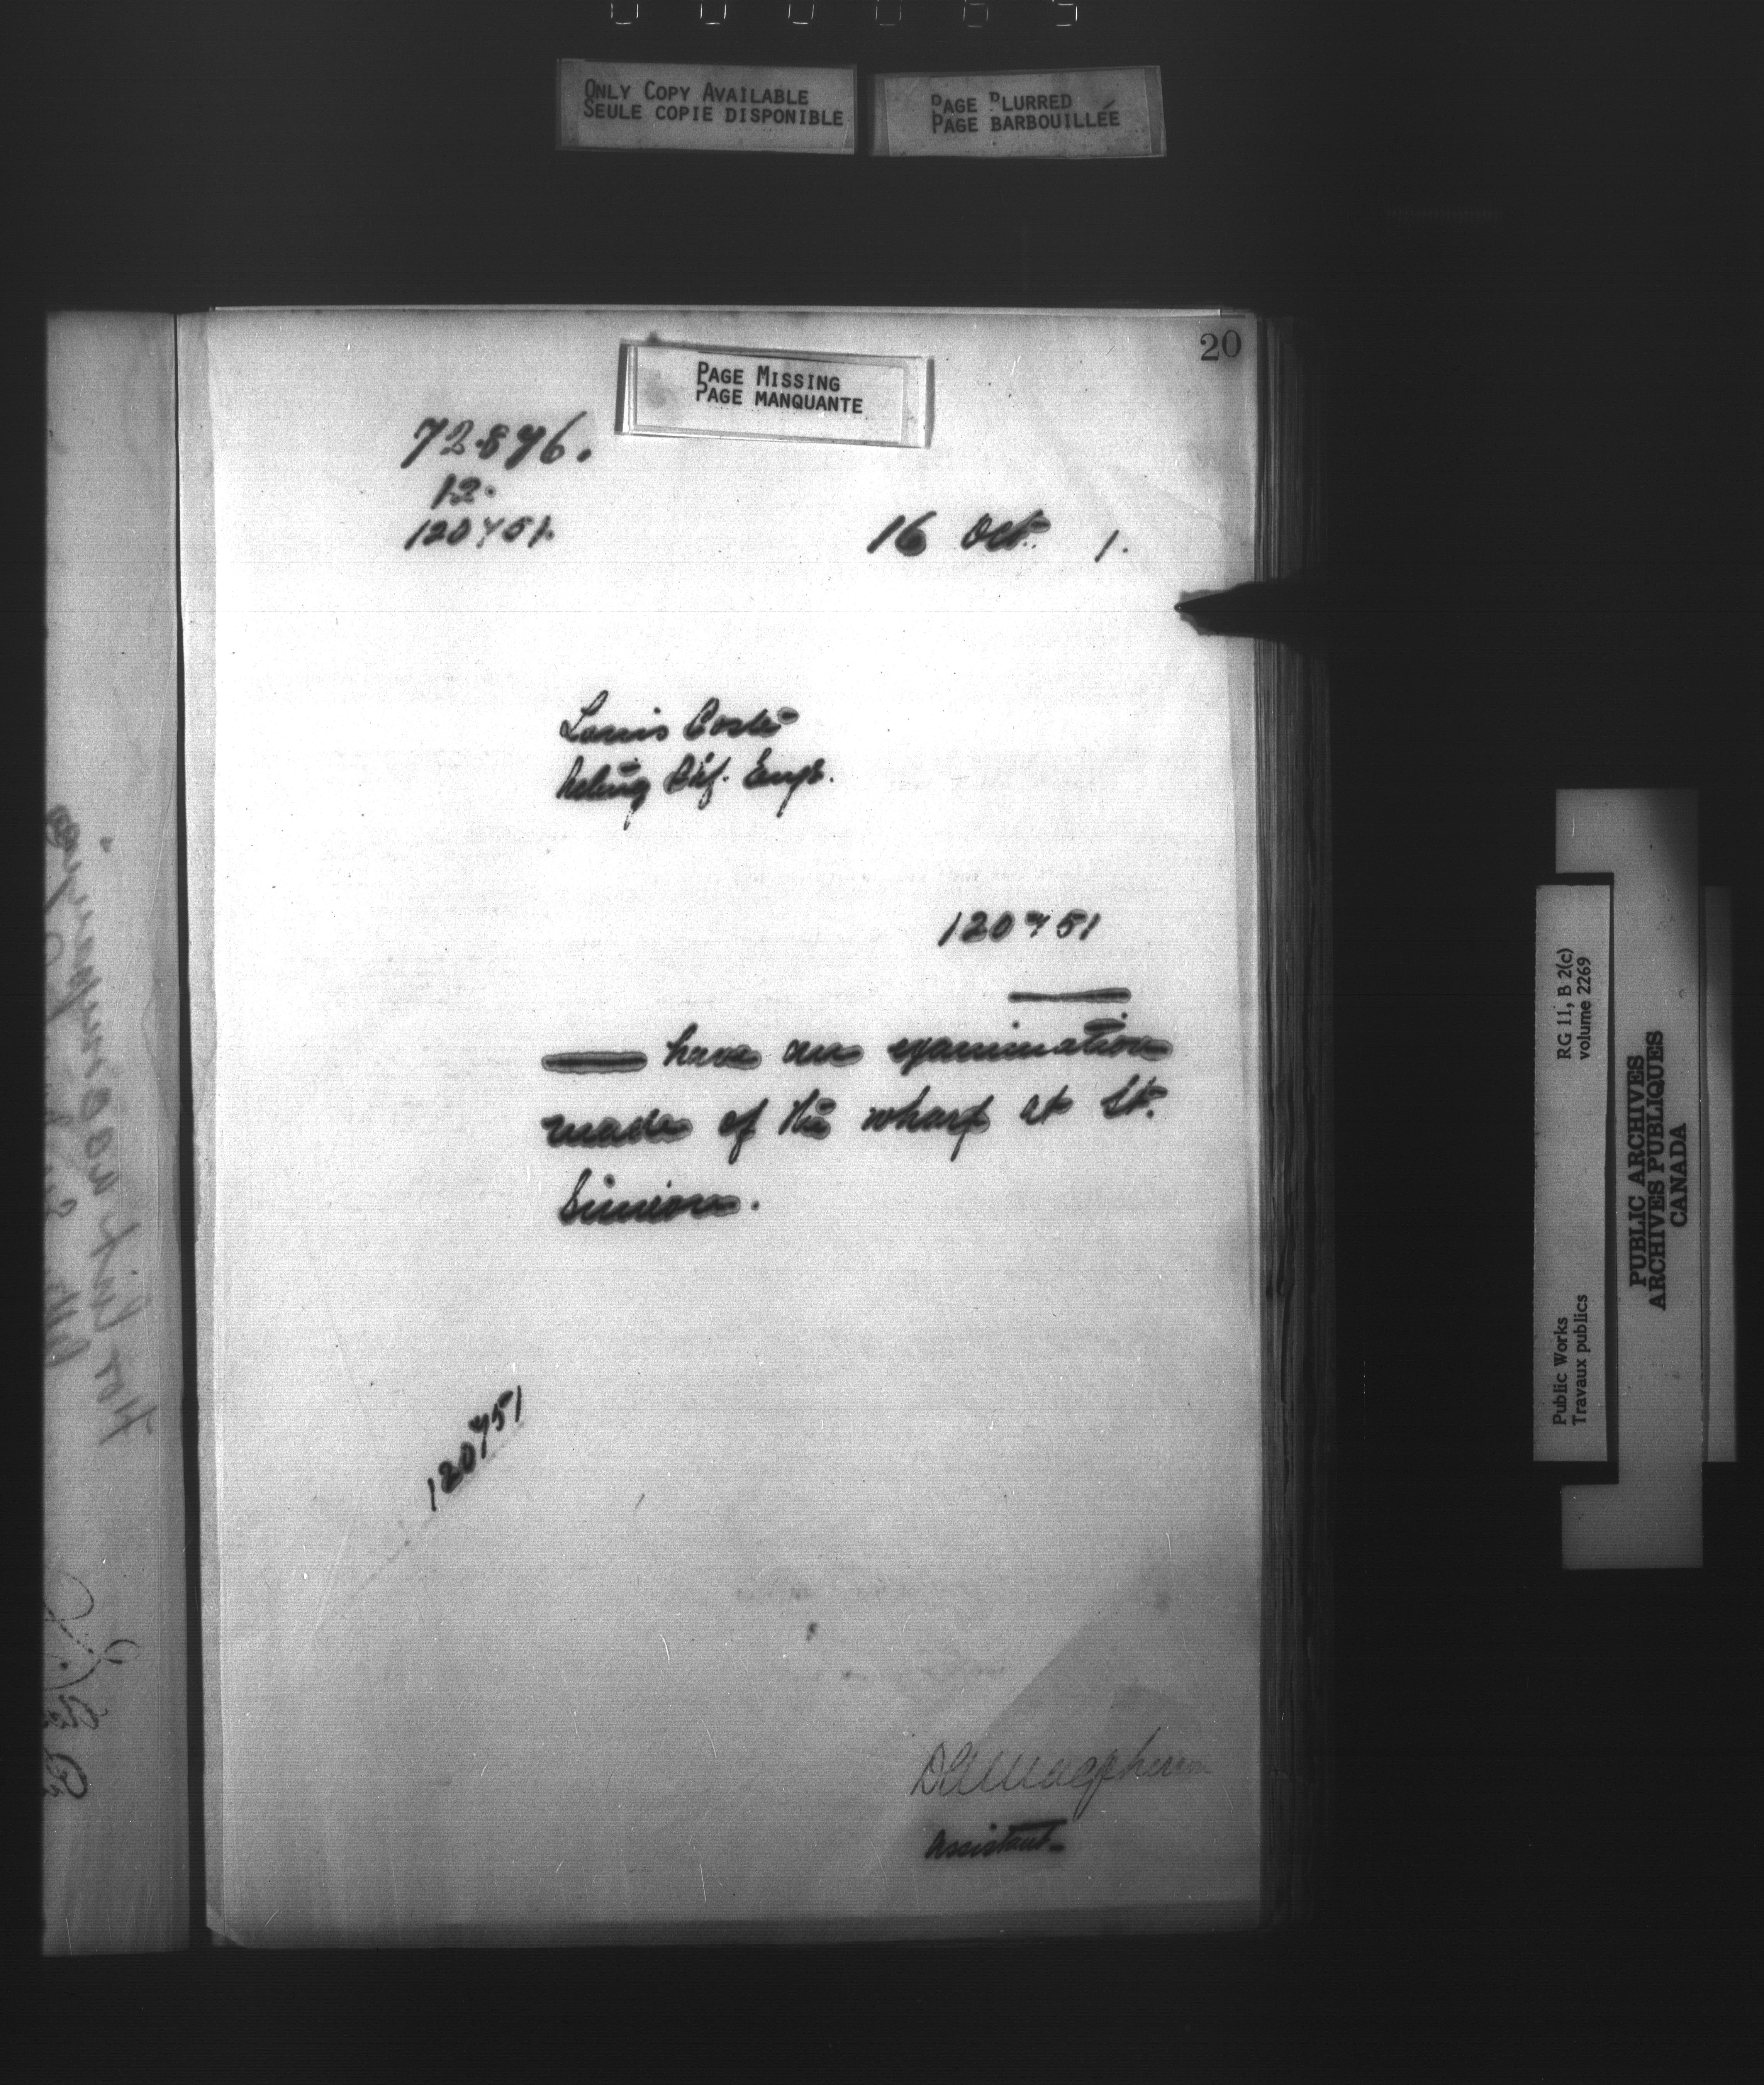 ONLY COPY AVAILABLE
SEULE COPIE DISPONIBLE
PAGE BLURRED
PAGE BARBOUILLÉE
20
PAGE MISSING
PAGE MANQUANTE
72876.
12.
120751.
16 Oct. 1.
Louis Coste
Acting Chf. Engr.
120751
have an examination
made of the wharf at St.
Simeon.
120751
Assistant
RG 11, B 2(c)
volume 2269
Public Works
Travaux publics
PUBLIC ARCHIVES
ARCHIVES PUBLIQUES
CANADA